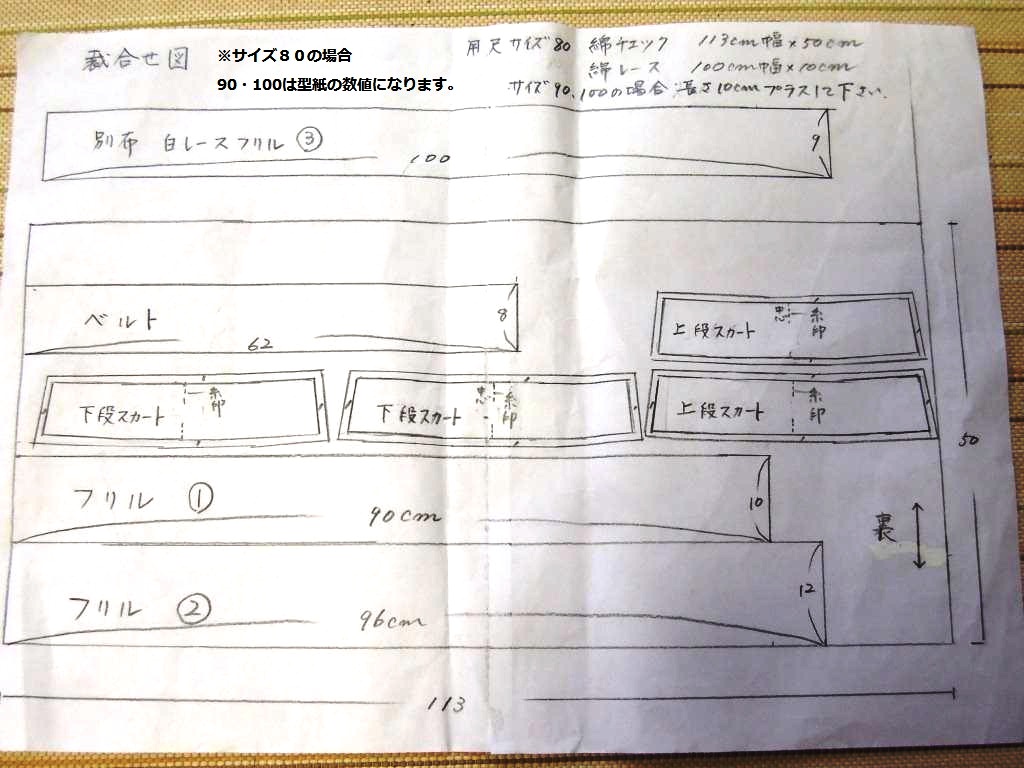 裁合せ図
※サイズ８０の場合
90・100は型紙の数値になります。
用尺 サイズ80 綿チェック 113cm幅×50cm
綿レース 100cm幅×10cm
サイズ90、100の場合、長さ10cmプラスして下さい。
別布 白レースフリル③
100
9
ベルト
62
8
上段スカート
糸印
下段スカート
糸印
下段スカート
糸印
上段スカート
糸印
50
フリル ①
90cm
10
裏
フリル ②
96cm
12
113